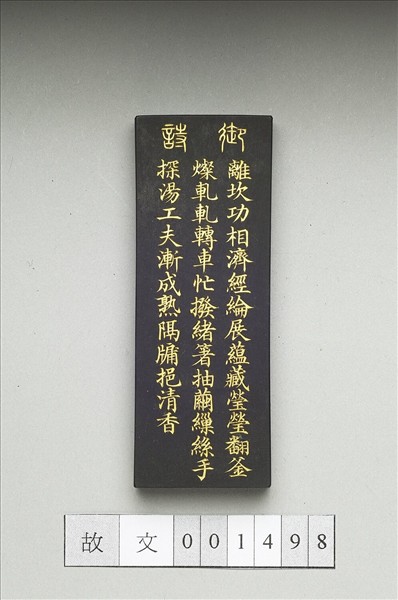 御詩
離坎功相濟經綸展蘊藏瑩瑩翻釜
燦軋軋轉車忙撥緒箸抽繭繅絲手
探湯工夫漸成熟隔牖挹清香
故文001498